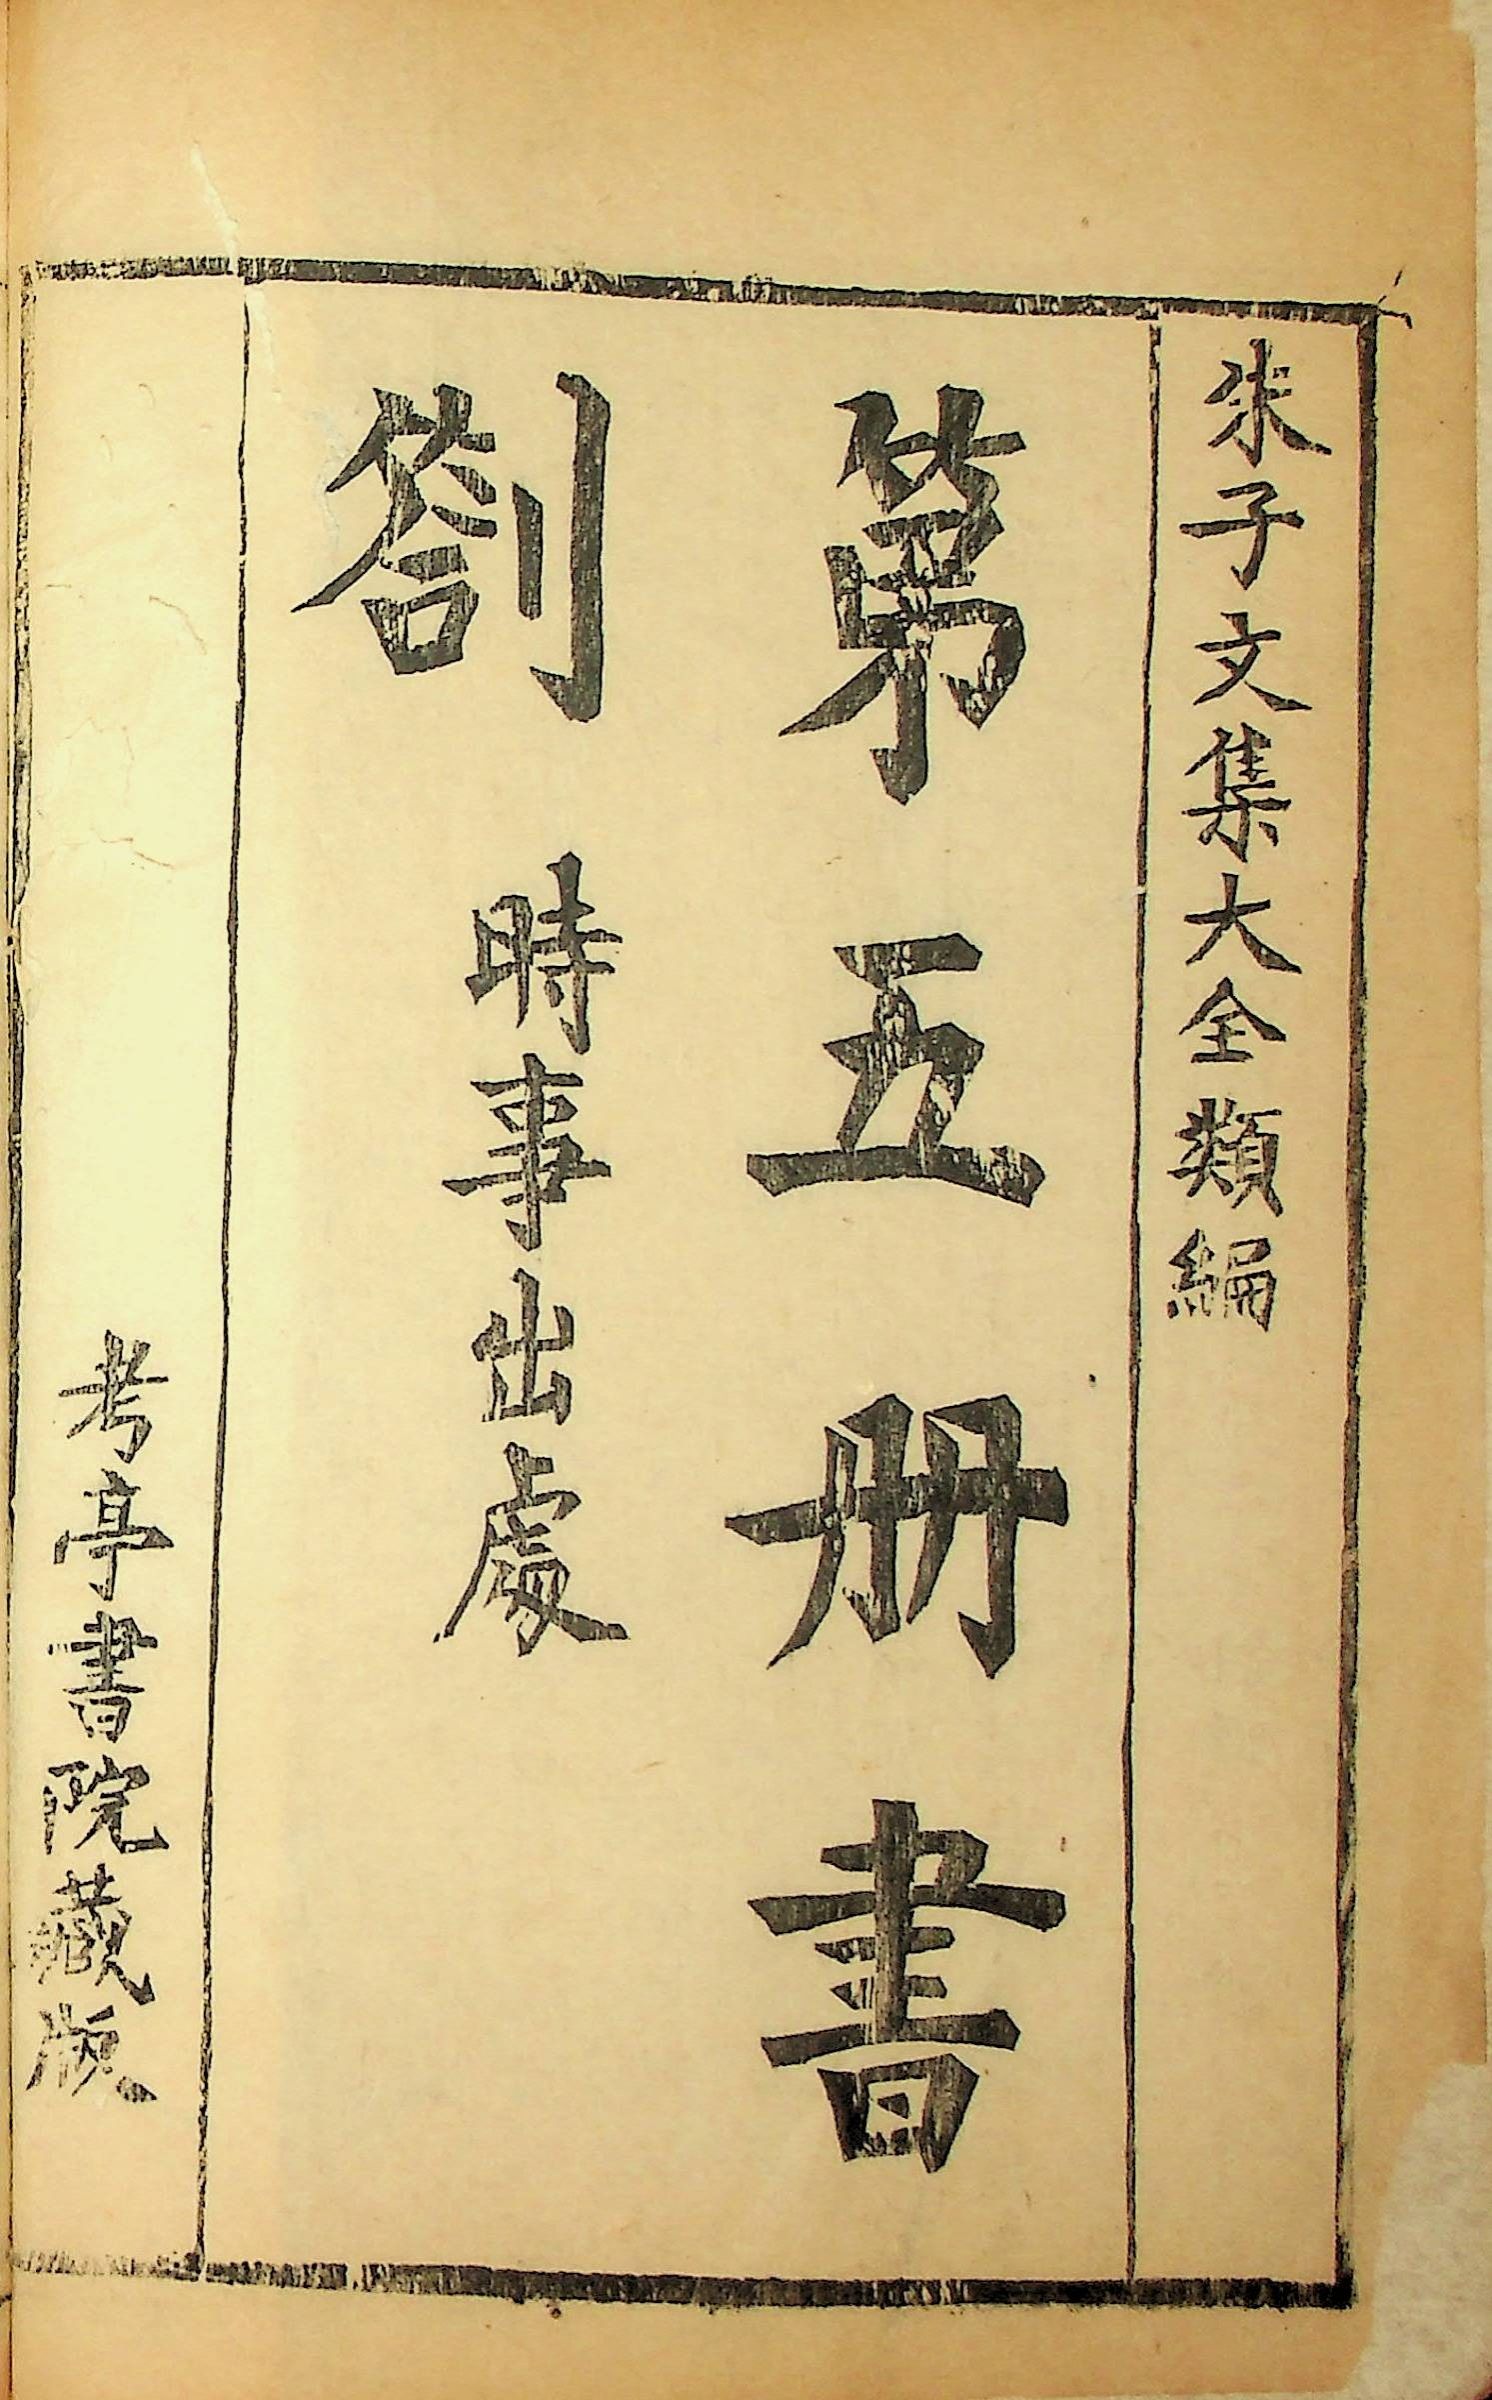 朱子文集大全類編
第五册書
劄 時事出處
考亭書院藏版